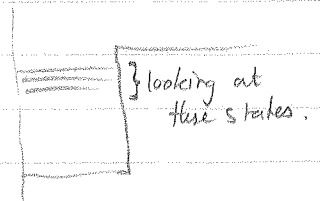 looking at
these states.